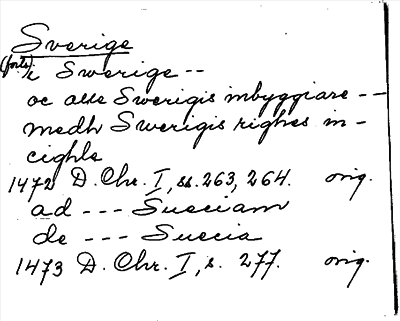 Sverige
(forts.) i Swerige --
oc alle Swerigis inbyggiare --
medh Swerigis righes in-
cighle
1472 D. Chr. I, ss. 263, 264. orig.
ad --- Sueciam
de --- Suecia
1473 D. Chr. I, s. 277. orig.